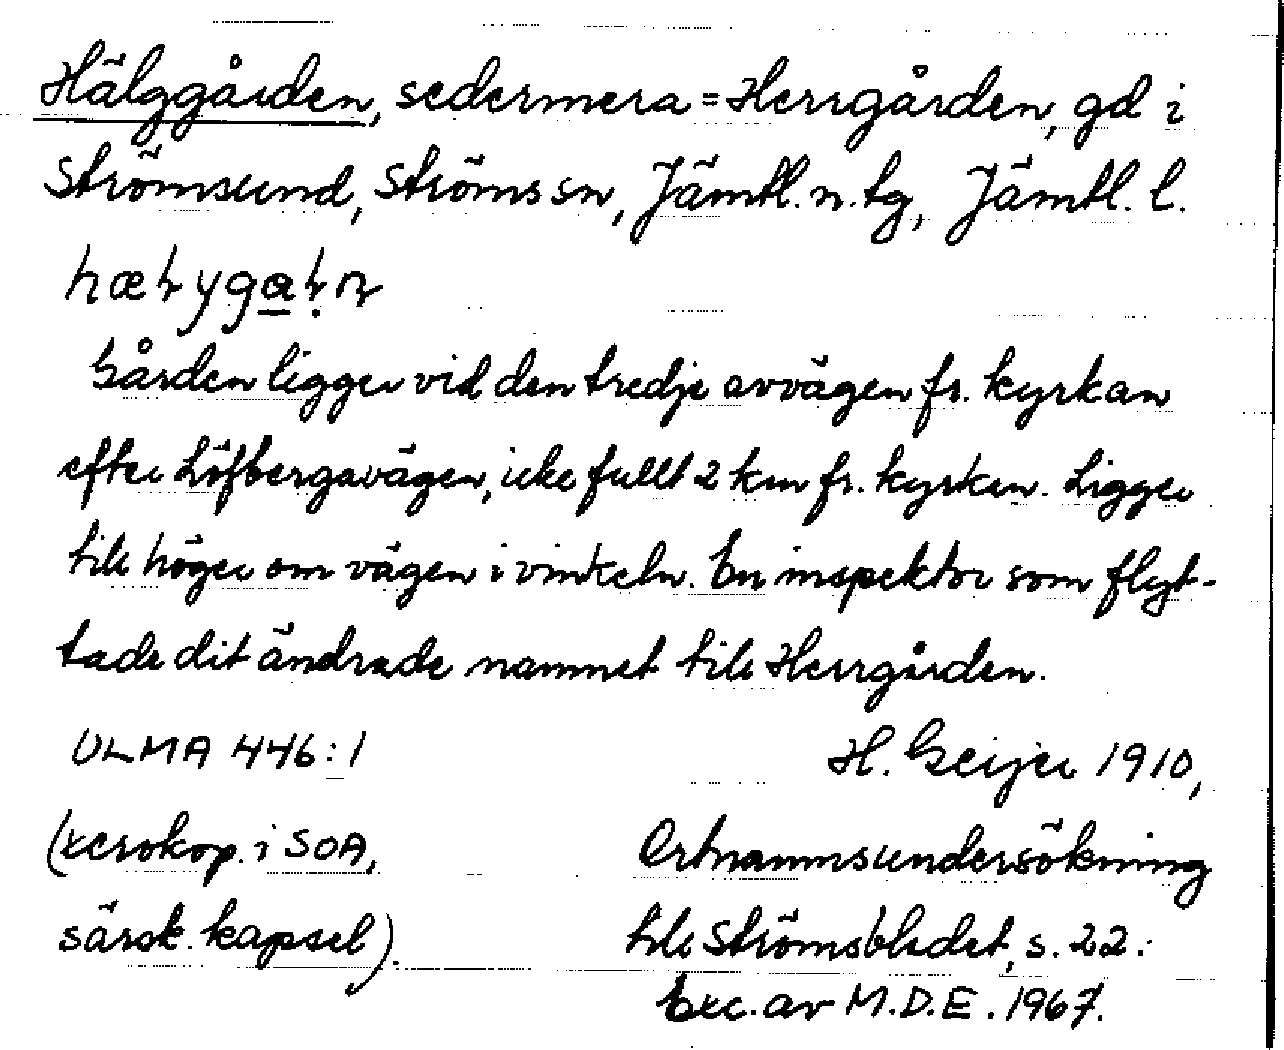 Hälggården, sedermera = Herrgården, gd i
Strömsund, Ströms sn, Jämtl. n. tg, Jämtl. l.
Gården ligger vid den tredje avvägen fr. kyrkan
efter Löfbergavägen, icke fullt 2 km fr. kyrkan. Ligger
till höger om vägen i vinkeln. En inspektor som flyt-
tade dit ändrade namnet till Herrgården.
ULMA 446:1
H. Geijer 1910,
(xerokop. i SOA,
Ortnamnsundersökning
särsk. kapsel).
till Strömsbladet, s. 22.
Exc. av M.D.E. 1967.